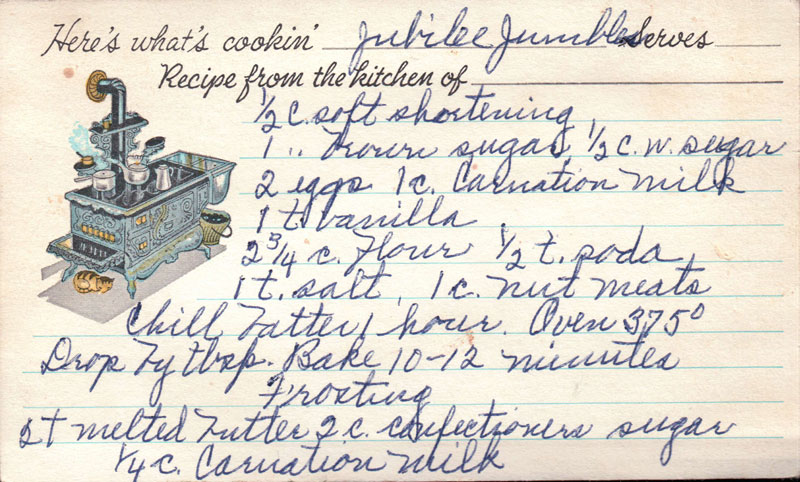 Here's what's cookin' Jubilee Jumbles Serves
Recipe from the kitchen of
1/2 c. soft shortening
1 " brown sugar, 1/2 c. w. sugar
2 eggs 1 c. Carnation milk
1 t. vanilla
2 3/4 c. flour 1/2 t. soda
1 t. salt, 1 c. nut meats
Chill batter 1 hour. Oven 375°
Drop by tbsp. Bake 10-12 minutes
Frosting
2 T melted butter 2 c. confectioners sugar
1/4 c. Carnation milk